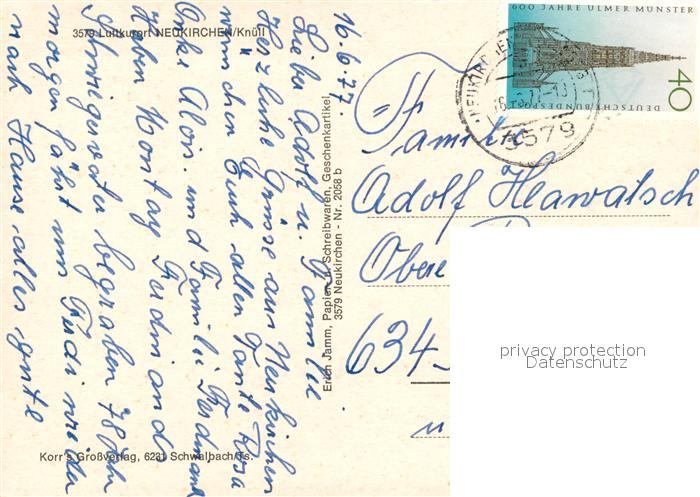 3579 Luftkurort NEUKIRCHEN/Knüll
16.6.77.
Liebe Adolf u. Familie
Herzliche Grüsse aus Neukirchen
wünschen Euch allen Tante Rosa
Onkel Alois. und Familie Ferdinand
Haben Montag Ferdinands
Schwigervater begraben 78 Jahr
morgen fährt uns Ferdi wieder
nach Hause. alles gute
Korr's Großverlag, 6231 Schwalbach/Ts.
Erich Jamm, Papier- u. Schreibwaren, Geschenkartikel
3579 Neukirchen - Nr. 2058 b
600 JAHRE ULMER MÜNSTER
DEUTSCHE BUNDESPOST
40
NEUKIRCHEN
3579
Familie
Adolf Hlawatsch
Obere
634
privacy protection
Datenschutz